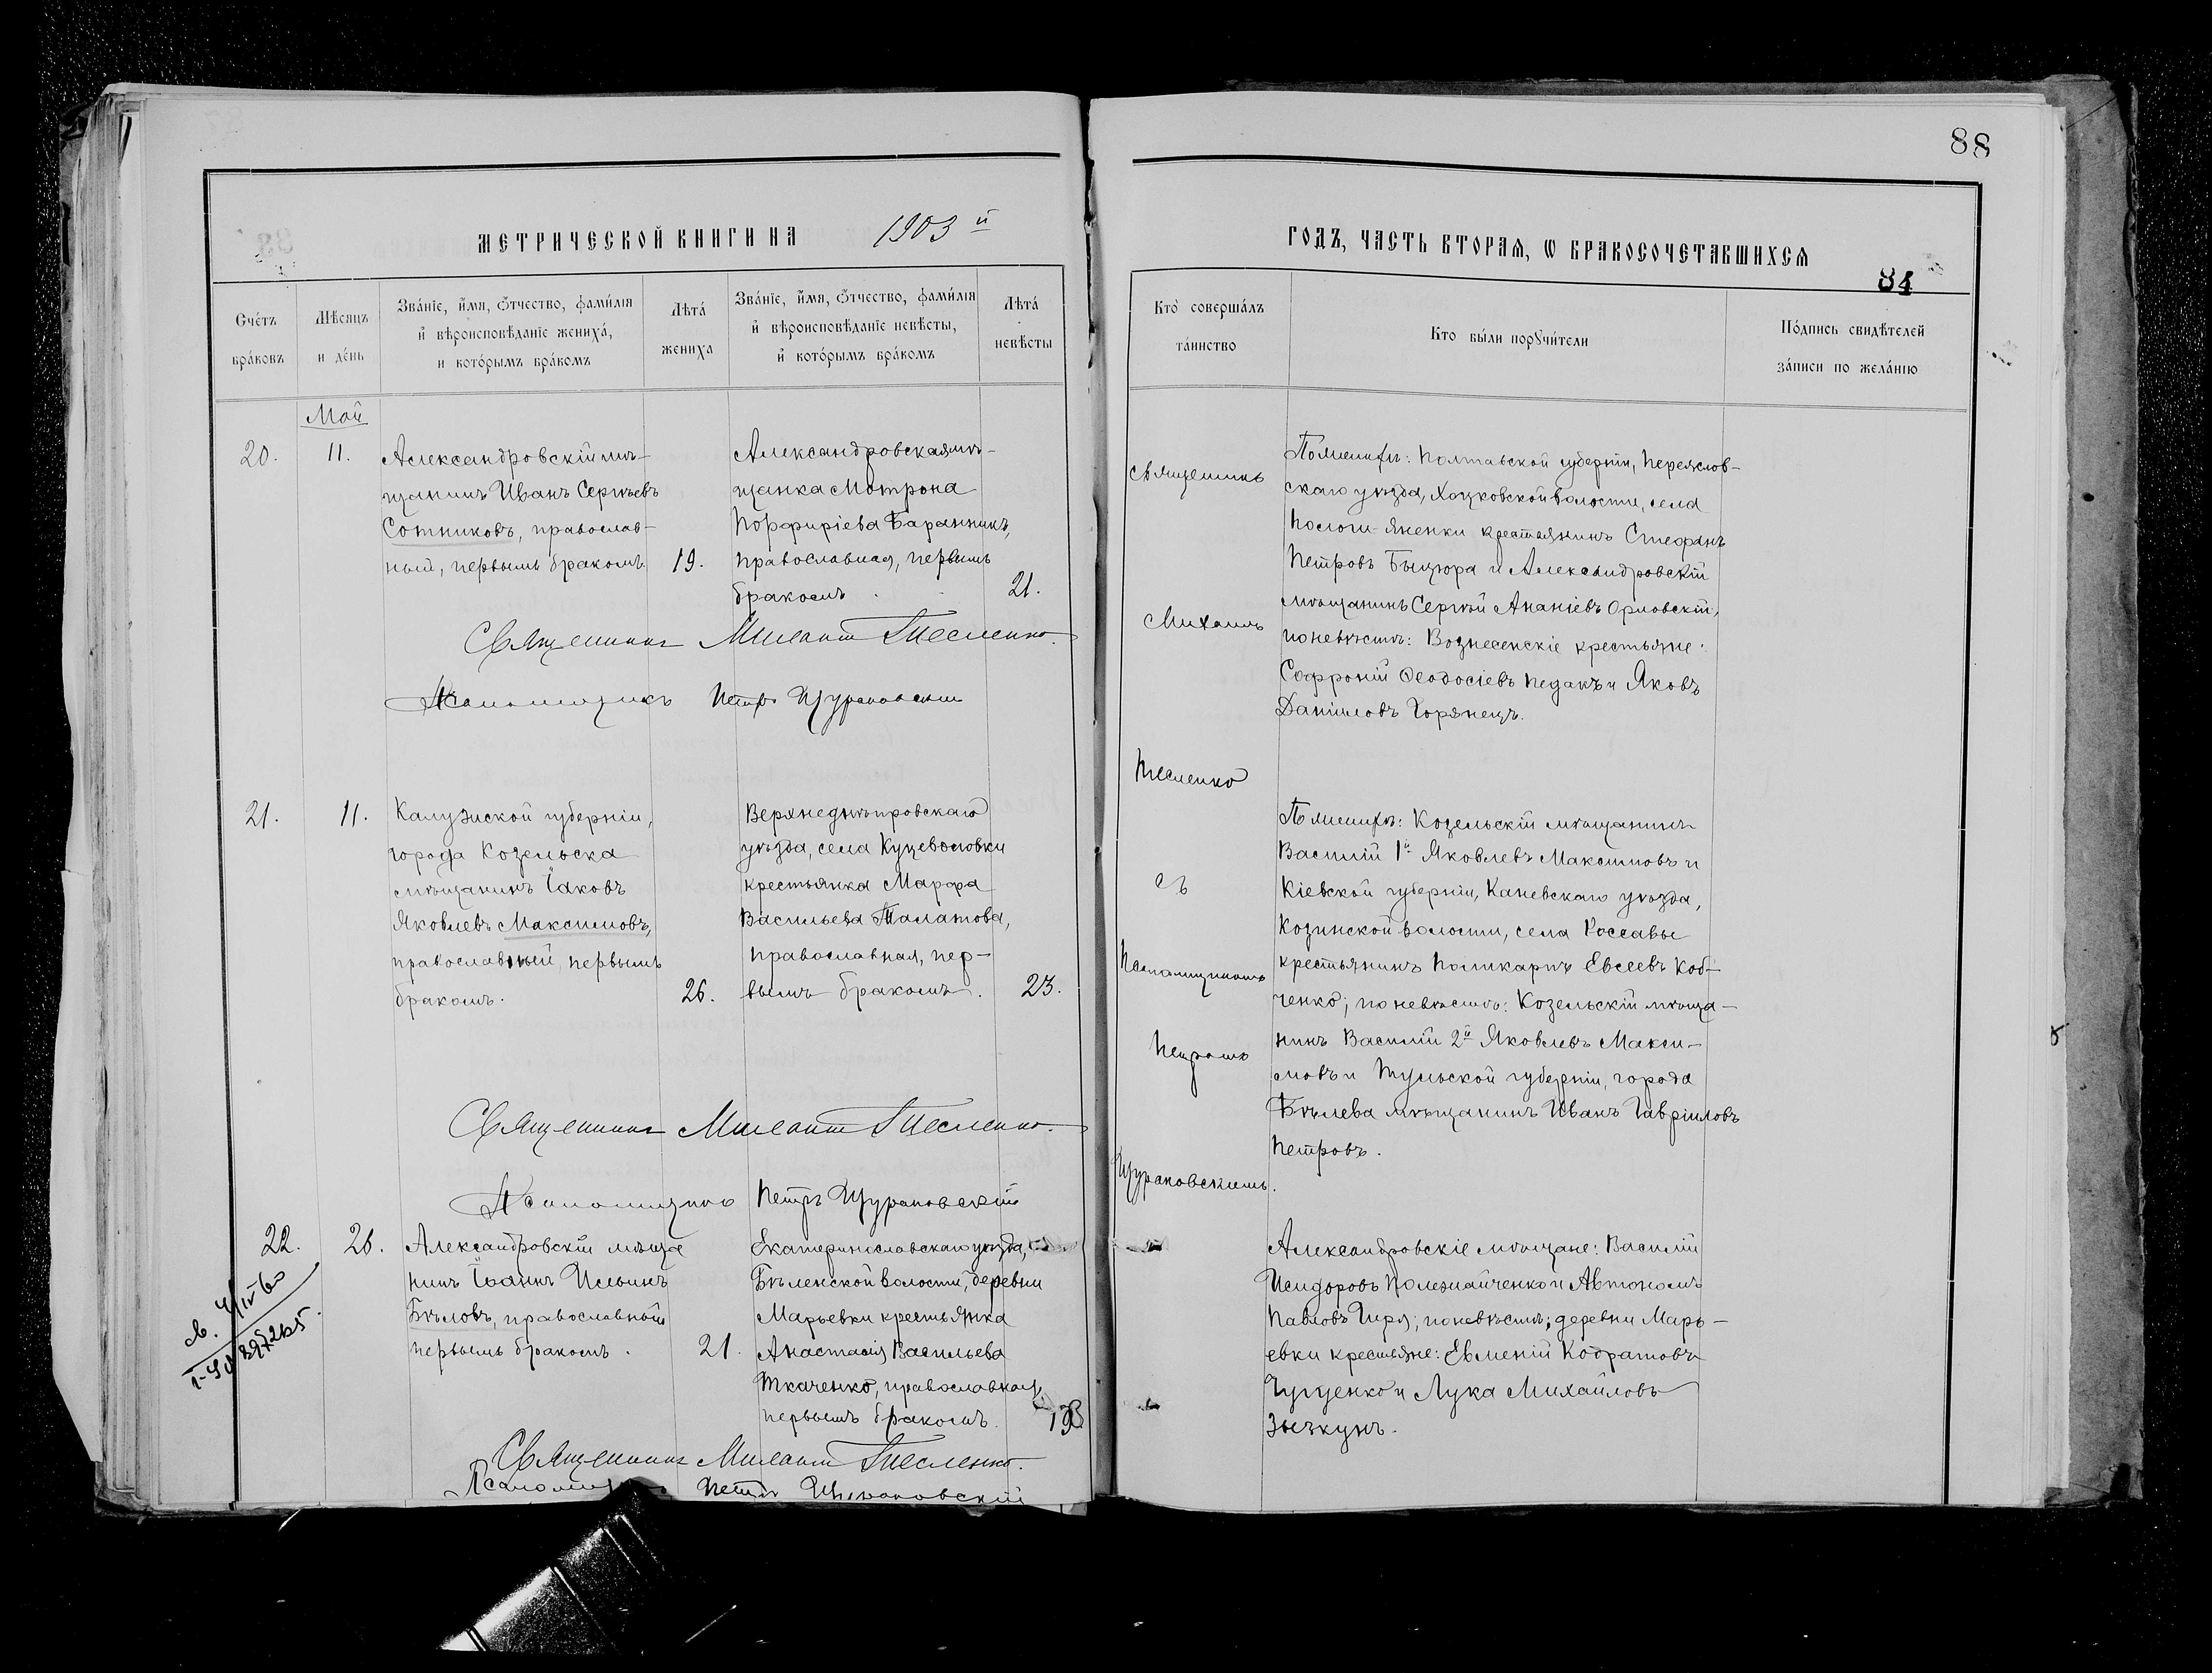 88
МЕТРИЧЕСКОЙ КНИГИ НА 1903 й
ГОДЪ, ЧАСТЬ ВТОРАЯ, Ѡ БРАКОСОЧЕТАВШИХСЯ
84
Сче́тъ бра́ковъ
Мѣ́сяцъ и де́нь
Зва́нїе, и҆́мя, ѻ҆́тчество, фами́лїя
и҆ вѣроисповѣ́данїе жениха́,
и кото́рымъ бра́комъ
Лѣта́ жениха
Зва́нїе, и҆́мя, ѻ҆́тчество, фами́лїя
и҆ вѣроисповѣ́данїе невѣ́сты,
и҆ кото́рымъ бра́комъ
Лѣта́ невѣ́сты
Кто̀ соверша́лъ
та́инство
Кто бы́ли порꙋчи́тели
По́дпись свидѣ́телей
за́писи по жела́нїю
Май
20.
11.
Александровскій мѣ-
щанинъ Иванъ Сергѣевъ
Сотниковъ, православ-
ный, первымъ бракомъ.
19.
Александровская мѣ-
щанка Мотрона
Порфиріева Баранникъ,
православная, первымъ
бракомъ .
21.
Священникъ Михаилъ Тесленко.
Псаломщикъ Петръ Щураковскій
По женихѣ: Полтавской губерніи, Переяслов-
скаго уѣзда, Хоцковской волости, села
Пологи-Яненки крестьянинъ Стефанъ
Петровъ Быцюра и Александровскій
мѣщанинъ Сергѣй Ананіевъ Орловскій,
по невѣстѣ: Вознесенскіе крестьяне:
Софроній Ѳеодосіевъ Педакъ и Яковъ
Даніиловъ Горянецъ.
21.
11.
Калужской губерніи,
города Козельска
мѣщанинъ Іаковъ
Яковлевъ Максимовъ,
православный, первымъ
бракомъ.
26.
Верхнеднѣпровскаго
уѣзда, села Куцеволовки
крестьянка Марфа
Васильева Талатова,
православная, пер-
вымъ бракомъ.
23.
Священникъ Михаилъ Тесленко.
Псаломщикъ Петръ Щураковскій
По женихѣ: Козельскій мѣщанинъ
Василій 1й Яковлевъ Максимовъ и
Кіевской губерніи, Каневскаго уѣзда,
Козинской волости, села Россавы
крестьянинъ Поликарпъ Евсеевъ Коб-
ченко; по невѣстѣ: Козельскій мѣща-
нинъ Василій 2й Яковлевъ Макси-
мовъ и Тульской губерніи, города
Бѣлева мѣщанинъ Иванъ Гавріиловъ
Петровъ.
22.
26.
Александровскій мѣща
нинъ Іоаннъ Ильинъ
Бѣловъ, православный
первымъ бракомъ .
21.
Екатеринославскаго уѣзда,
Бѣленской волости, деревни
Марьевки крестьянка
Анастасія Васильева
Ткаченко, православная,
первымъ бракомъ.
Священникъ Михаилъ Тесленко.
Псаломщикъ Петръ Щураковскій
Александровскіе мѣщане: Василій
Исидоровъ Полежайченко и Автономъ
Павловъ Гиря; по невѣстѣ: деревни Марь-
евки крестьяне: Евменій Кодратовъ
Гуценко и Лука Михайловъ
Зызкунъ.
Священникъ
Михаилъ
Тесленко
съ
Псаломщикомъ
Петромъ
Щураковскимъ.